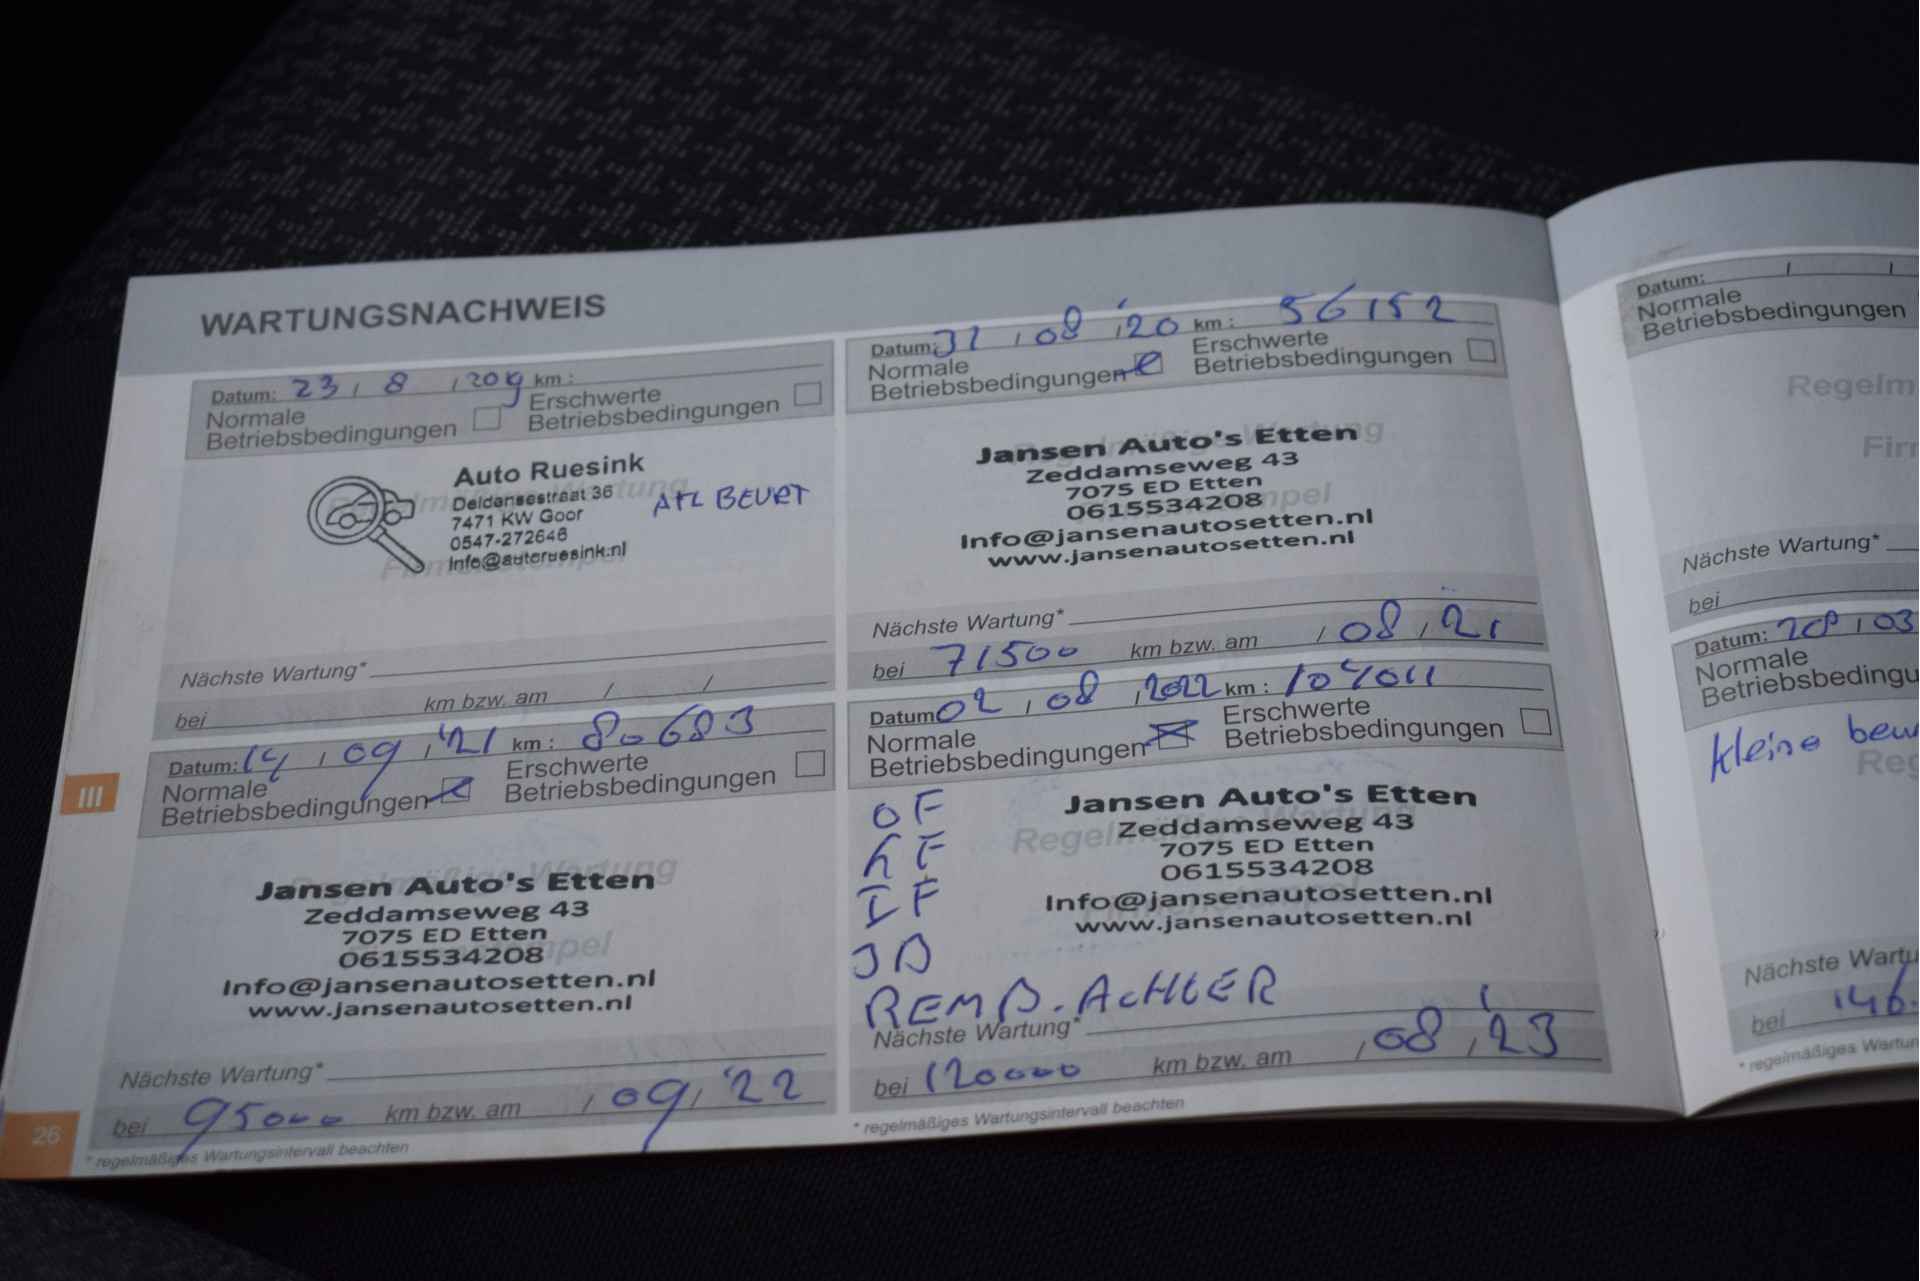 WARTUNGSNACHWEIS
Datum: 23 / 8 / 2019 km :
Normale Betriebsbedingungen
Erschwerte Betriebsbedingungen
Auto Ruesink
Deldensestraat 36
7471 KW Goor
0547-272646
Info@autoruesink.nl
AFL BEURT
Nächste Wartung*
bei km bzw. am / /
Datum: 31 / 08 / '20 km : 56152
Normale Betriebsbedingungen
Erschwerte Betriebsbedingungen
Jansen Auto's Etten
Zeddamseweg 43
7075 ED Etten
0615534208
Info@jansenautosetten.nl
www.jansenautosetten.nl
Nächste Wartung*
bei 71500 km bzw. am / 08 / 21
Datum: 14 / 09 / '21 km : 80683
Normale Betriebsbedingungen
Erschwerte Betriebsbedingungen
Jansen Auto's Etten
Zeddamseweg 43
7075 ED Etten
0615534208
Info@jansenautosetten.nl
www.jansenautosetten.nl
Nächste Wartung*
bei 95000 km bzw. am / 09 / '22
* regelmäßiges Wartungsintervall beachten
III
26
Datum: 02 / 08 / 2022 km : 104011
Normale Betriebsbedingungen
Erschwerte Betriebsbedingungen
OF
LF
IF
JB
REMB. ACHTER
Jansen Auto's Etten
Zeddamseweg 43
7075 ED Etten
0615534208
Info@jansenautosetten.nl
www.jansenautosetten.nl
Nächste Wartung*
bei 120000 km bzw. am / 08 / '23
* regelmäßiges Wartungsintervall beachten
Datum: / /
Normale
Betriebsbedingungen
Regelm
Firm
Nächste Wartung*
bei
Datum: 28 / 03
Normale
Betriebsbedingu
kleine beu
Reg
Nächste Wartu
bei 146.
* regelmäßiges Wartun